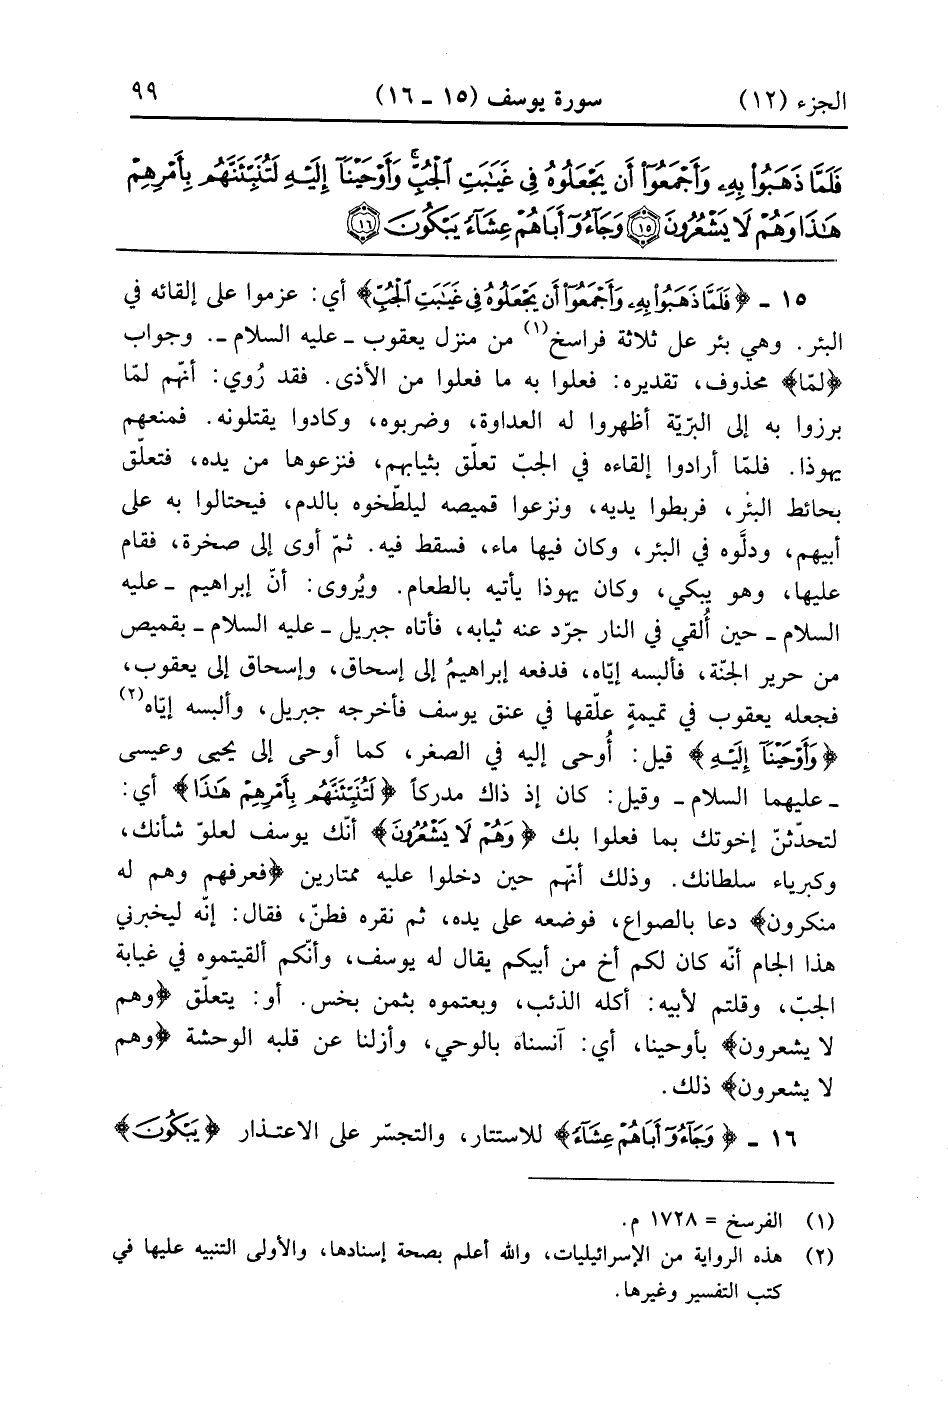 الجزء (١٢) سورة يوسف (١٥ ـ ١٦) ٩٩
فَلَمَّا ذَهَبُوا۟ بِهِۦ وَأَجْمَعُوٓا۟ أَن يَجْعَلُوهُ فِى غَيَـٰبَتِ ٱلْجُبِّ ۚ وَأَوْحَيْنَآ إِلَيْهِ لَتُنَبِّئَنَّهُم بِأَمْرِهِمْ
هَـٰذَا وَهُمْ لَا يَشْعُرُونَ ﴿١٥﴾ وَجَآءُوٓ أَبَاهُمْ عِشَآءً يَبْكُونَ ﴿١٦﴾
١٥ ـ ﴿فَلَمَّا ذَهَبُوا۟ بِهِۦ وَأَجْمَعُوٓا۟ أَن يَجْعَلُوهُ فِى غَيَـٰبَتِ ٱلْجُبِّ﴾ أي: عزموا على إلقائه في
البئر. وهي بئر عل ثلاثة فراسخ(١) من منزل يعقوب ـ عليه السلام ـ. وجواب
﴿لمّا﴾ محذوف، تقديره: فعلوا به ما فعلوا من الأذى. فقد رُوي: أنّهم لمّا
برزوا به إلى البرّيّة أظهروا له العداوة، وضربوه، وكادوا يقتلونه. فمنعهم
يهوذا. فلمّا أرادوا إلقاءه في الجبّ تعلّق بثيابهم، فنزعوها من يده، فتعلّق
بحائط البئر، فربطوا يديه، ونزعوا قميصه ليلطّخوه بالدم، فيحتالوا به على
أبيهم، ودلَّوه في البئر، وكان فيها ماء، فسقط فيه. ثمّ أوى إلى صخرة، فقام
عليها، وهو يبكي، وكان يهوذا يأتيه بالطعام. ويُروى: أنّ إبراهيم ـ عليه
السلام ـ حين أُلقي في النار جرّد عنه ثيابه، فأتاه جبريل ـ عليه السلام ـ بقميص
من حرير الجنّة، فألبسه إيّاه، فدفعه إبراهيمُ إلى إسحاق، وإسحاق إلى يعقوب،
فجعله يعقوب في تميمةٍ علّقها في عنق يوسف فأخرجه جبريل، وألبسه إيّاه(٢)
﴿وَأَوْحَيْنَآ إِلَيْهِ﴾ قيل: أُوحى إليه في الصغر، كما أوحى إلى يحيى وعيسى
ـ عليهما السلام ـ وقيل: كان إذ ذاك مدركاً ﴿لَتُنَبِّئَنَّهُم بِأَمْرِهِمْ هَـٰذَا﴾ أي:
لتحدّثنّ إخوتك بما فعلوا بك ﴿وَهُمْ لَا يَشْعُرُونَ﴾ أنّك يوسف لعلوّ شأنك،
وكبرياء سلطانك. وذلك أنّهم حين دخلوا عليه ممتارين ﴿فعرفهم وهم له
منكرون﴾ دعا بالصواع، فوضعه على يده، ثم نقره فطنّ، فقال: إنّه ليخبرني
هذا الجام أنّه كان لكم أخ من أبيكم يقال له يوسف، وأنّكم ألقيتموه في غيابة
الجبّ، وقلتم لأبيه: أكله الذئب، وبعتموه بثمن بخس. أو: يتعلّق ﴿وهم
لا يشعرون﴾ بأوحينا، أي: آنسناه بالوحي، وأزلنا عن قلبه الوحشة ﴿وهم
لا يشعرون﴾ ذلك.
١٦ ـ ﴿وَجَآءُوٓ أَبَاهُمْ عِشَآءً﴾ للاستتار، والتجسّر على الاعتذار ﴿يَبْكُونَ﴾
(١) الفرسخ = ١٧٢٨ م.
(٢) هذه الرواية من الإسرائيليات، والله أعلم بصحة إسنادها، والأولى التنبيه عليها في
كتب التفسير وغيرها.